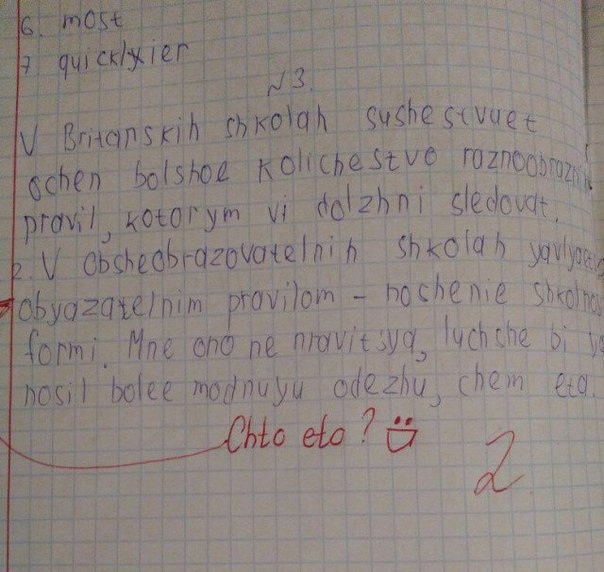 6. most
7 quicklyier
N3.
V Britanskih shkolah sushestvuet
ochen bolshoe kolichestvo
pravil, kotorym vi dolzhni sledovat.
2. V obsheobrazovatelnih shkolah
obyazatelnim pravilom - noshenie
formi. Mne ono ne nravitsya, luchshe bi
nosil bolee modnuyu odezhu, chem eta.
Chto eto?
2